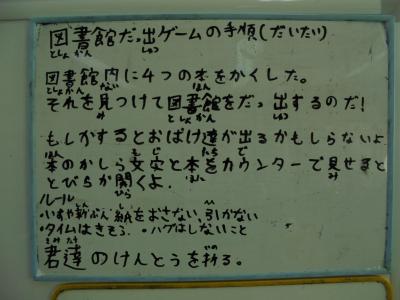 図書館だっ出ゲームの手順(だいたい)
図書館内に4つの本をかくした。
それを見つけて図書館をだっ出するのだ!
もしかするとおばけ達が出るかもしらないよ
本のかしら文字と本をカウンターで見せると
とびらが開くよ.
ルール
・いすや新ぶん紙をおさない,引かない
・タイムはきそう. ・ハグはしないこと
君達のけんとうを祈る。